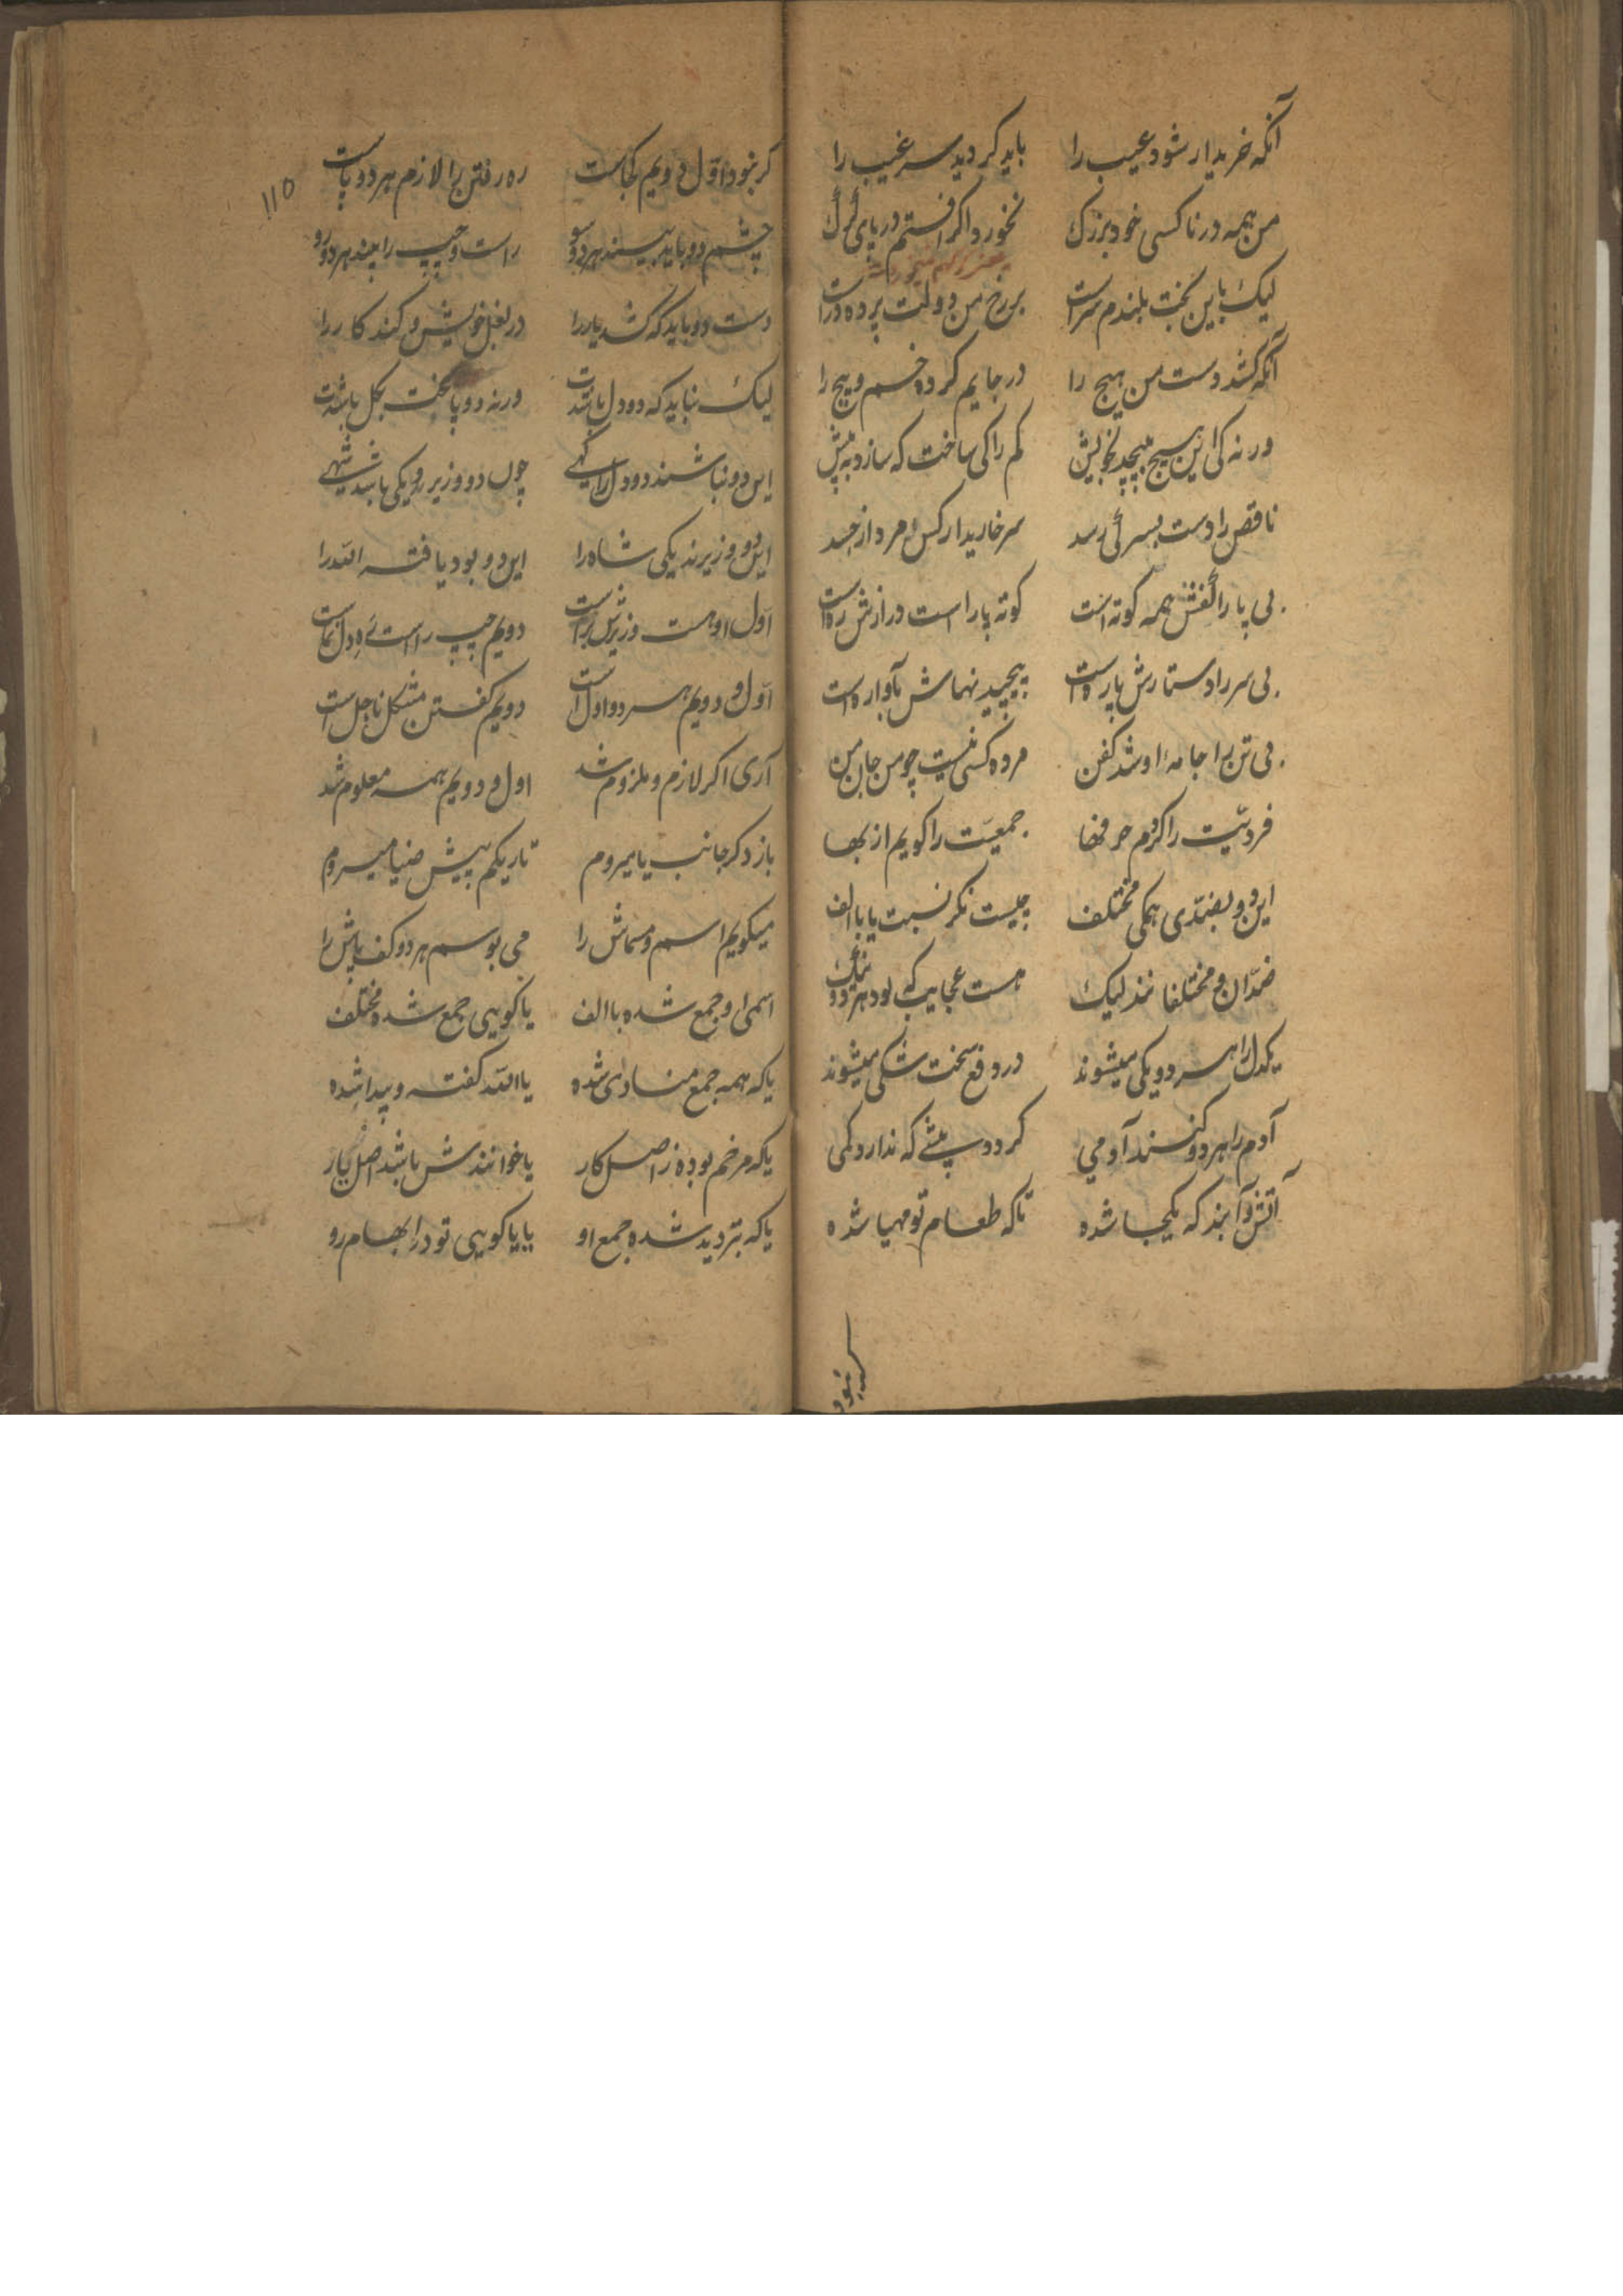 آنکه خریدار شود عیب را باید کر دید سر غیب را
من همه در ناکسی خود بزرک نخورد اکر افتم در پای کرک
لیک باین بخت بلندم سراست بر رخ من دولت پرده دراست
آنکه کشد دست من هیچ را در جایم کرده خم و پیچ را
ورنه کی این هیچ بپیچد بخویش کم را کی ساخت که سازد به پیش
ناقص را دست بسر کی رسد سر خاریدار کس مرد از جسد
بی پا را کفش همه کوته است کوته پا راست درازش ره است
بی سر را دستارش پاره است پیچید نهاش آواره است
بی تن را جامهٔ او شد کفن مرده کسی نیست چو من جان من
فردیّت را کردم حرفها جمعیّت را کویم از بها
این دو بضدّی همکی مختلف چیست نکر نسبت یا با الف
ضدّان و مختلفانند لیک هست عجایب که بود هر دو نیک
یکدل را هر دو یکی میشوند در دفع سخت شکی میشوند
آدم را هر دو کنند آدمی کردد بیشی که ندارد کمی
آتش و آبند که یکجا شده تا که طعام تو مهیا شده
کر نبود
۱۱۵
کر نبود اوّل دویم کجاست ره رفتن را لازم هر دو پاست
چشم دو باید بیند هر دو سو راست و چپ را بیند هر دو رو
دست دو باید که کشد یار را در بغل خویش و کند کار را
لیک نباید که دو دل باشدت ورنه دو پا سخت بکل باشدت
این دو نباشند دو دل را کهی چون دو وزیر و یکی باشد شهی
این دو وزیرند یکی شاه را این دو بود یافته اللّه را
اوّل او هست وزیرش براست دویم چپ راست ده دل نماست
اوّل و دویم هر دو اول است دویم کفتن مشکل ناحل است
آری اکر لازم و ملزوم شد اول و دویم همه معلوم شد
باز دکر جانب یا میروم تاریکم پیش ضیا میروم
میکویم اسم و مسماش را می بوسم هر دو کف پاش را
اسمی او جمع شده با الف یا کویی جمع شده مختلف
یا که همه جمع منادی شده یا اللّه کفته و پیدا شده
یا که مرخم بوده ز اصل کار یا خوانندش باشد اصل یار
یا که بتردید شده جمع او یا یا کویی تو در ابهام رو